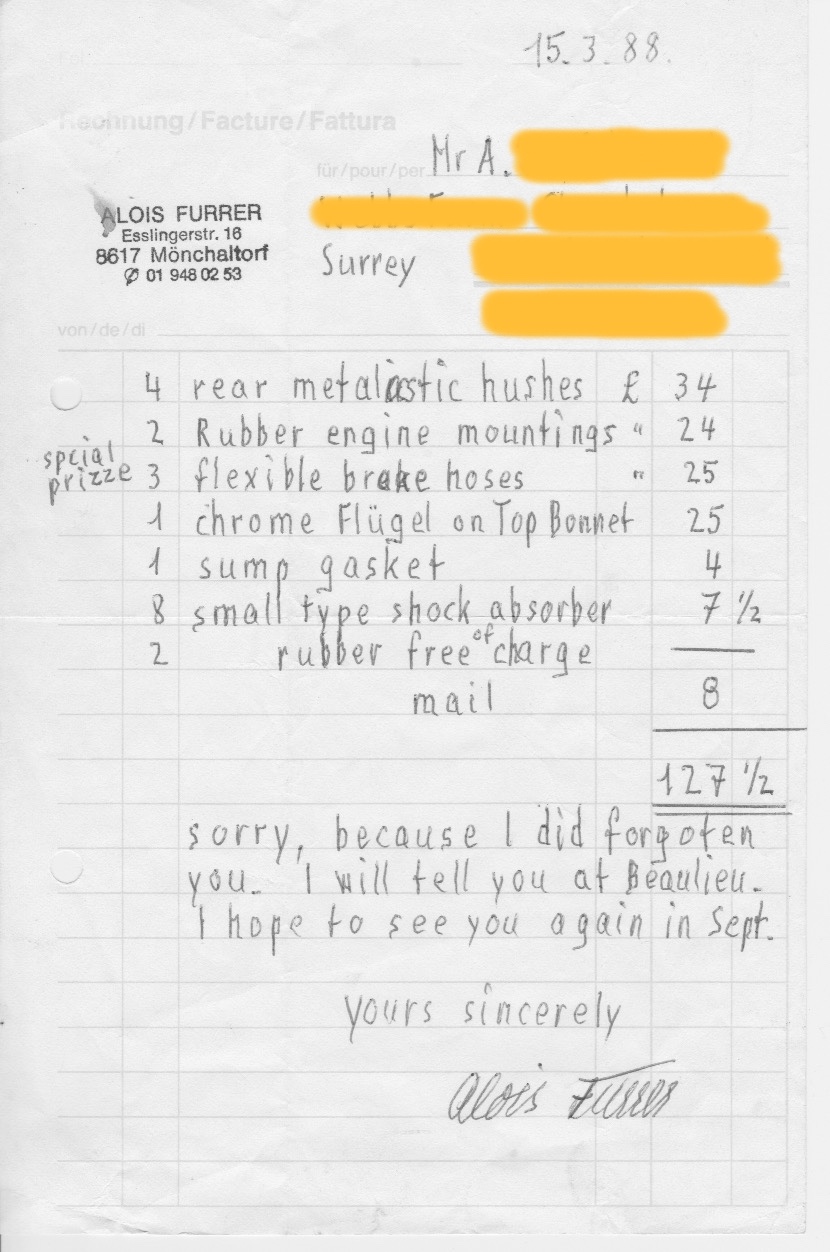 15.3.88.
Rechnung/Facture/Fattura
für/pour/per Mr A.
ALOIS FURRER
Esslingerstr. 16
8617 Mönchaltorf
✆ 01 948 02 53
Surrey
von/de/di
4 rear metalastic hushes £ 34
2 Rubber engine mountings " 24
spcial prizze
3 flexible brake hoses " 25
1 chrome Flügel on Top Bonnet 25
1 sump gasket 4
8 small type shock absorber 7 1/2
2 rubber free of charge —
mail 8
127 1/2
sorry, because I did forgoten
you. I will tell you at Beaulieu.
I hope to see you again in Sept.
yours sincerely
Alois Furrer